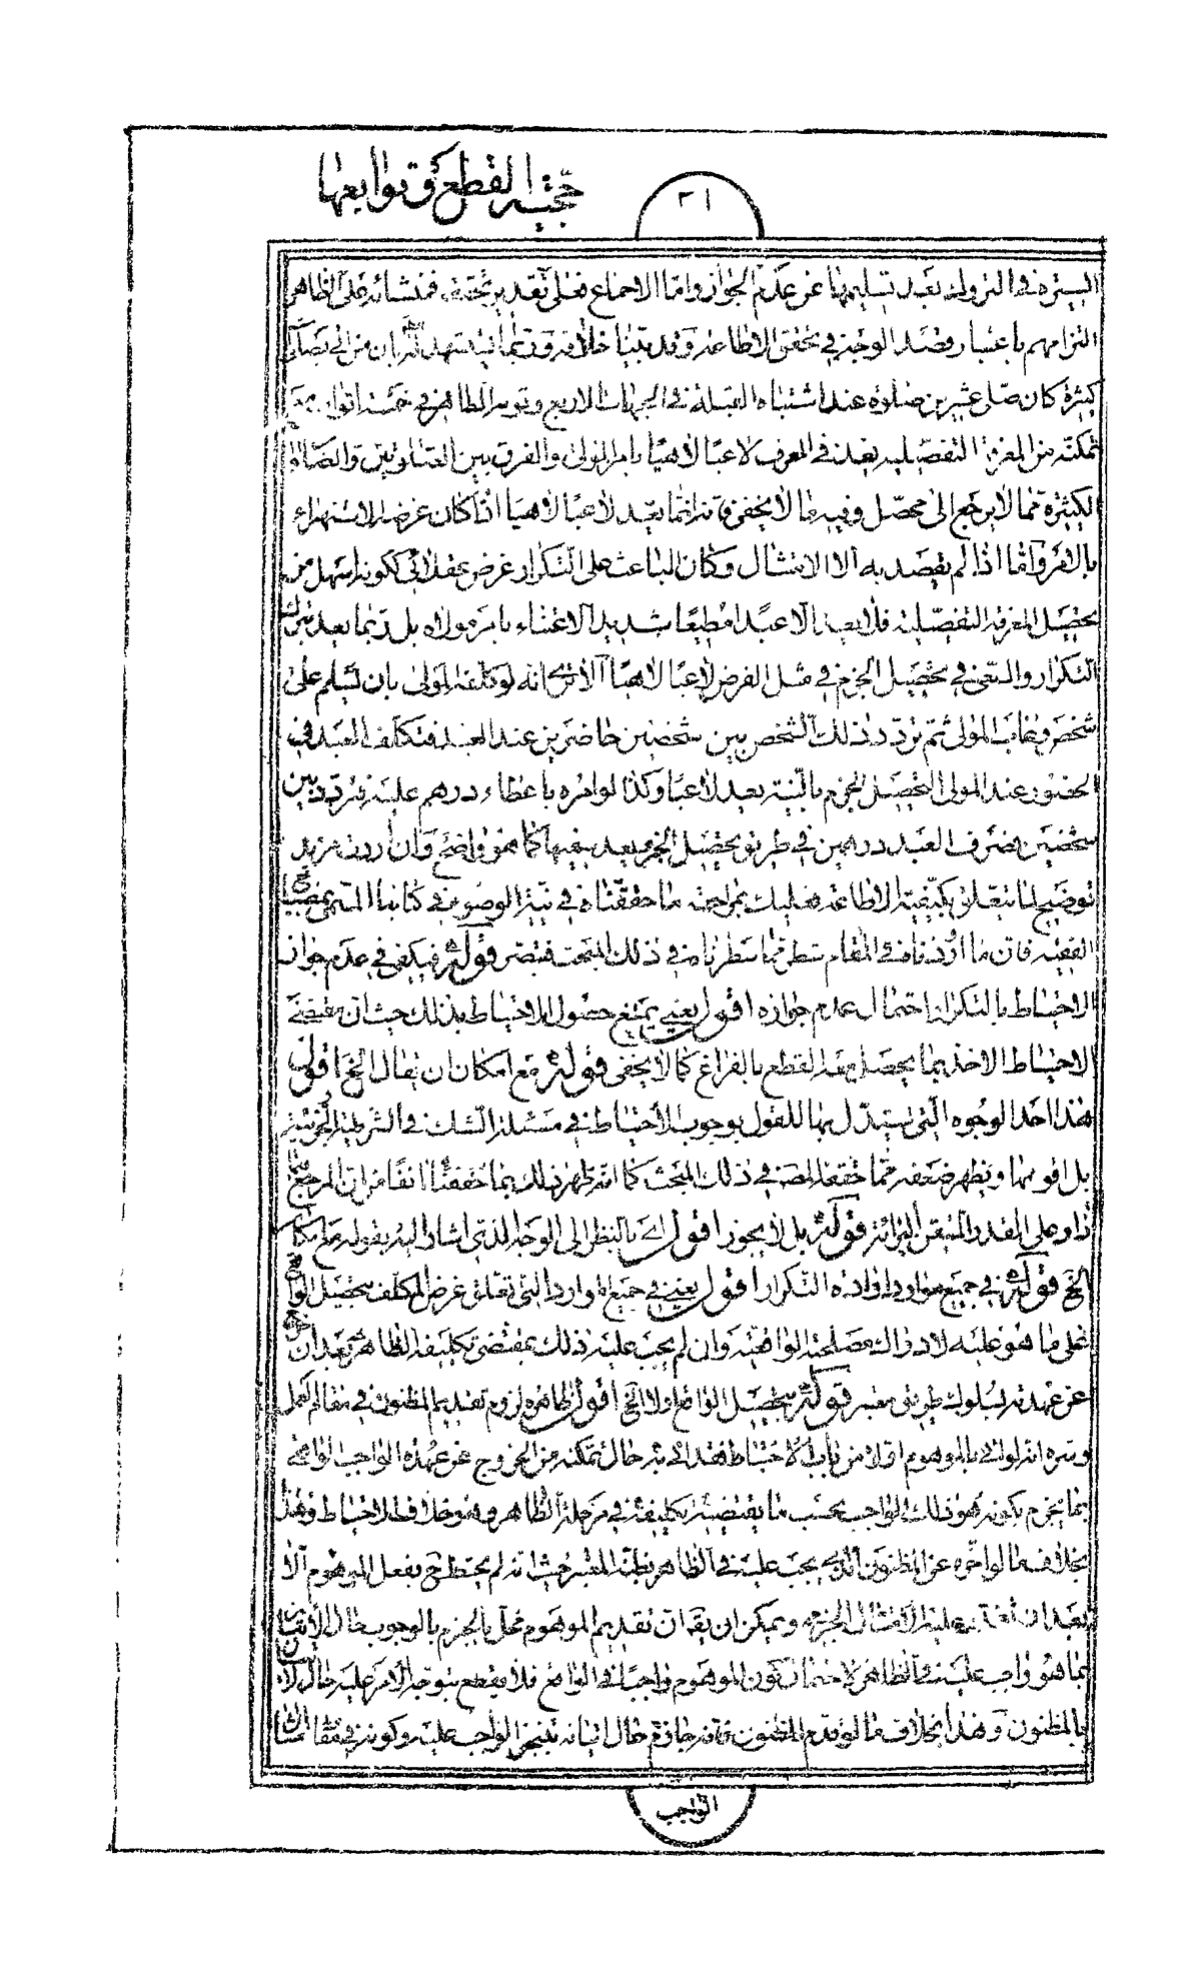 حجية القطع و توابعها
٢١
السيرة في التروك بعد تسليمها عن عدم الجواز واما الاجماع فعلى تقدير تحققه فمنشائه على الظاهر
التزامهم باعتبار قصد الوجه في تحقق الاطاعة وقد بينا خلافه وربما يستشهد له بان من اتى بصلوات
كثيرة كان صلى عشرين صلوة عند اشتباه القبلة في الجهات الاربع وتوبه الطاهر في خمسة اثواب مع
تمكنه من المعرفة التفصيلية يعد في العرف لاعبا لاهيا بامر المولى والفرق بين الصلوتين والصلاة
الكثيرة مما لا يرجع الى محصل وفيه ما لا يخفى فانه انما يعد لاعبا لاهيا اذا كان غرضه الاستهزاء
بالامر واما اذا لم يقصد به الا الامتثال وكان الباعث على التكرار غرض عقلائي ككونه اسهل من
تحصيل المعرفة التفصيلية فلا يعد الا عبدا مطيعا شديد الاعتناء بامر مولاه بل ربما يعد بترك
التكرار والسعى في تحصيل الجزم في مثل الفرض لاعبا لاهيا الا ترى انه لو كلفه المولى بان يسلم على
شخص وغاب المولى ثم تردد ذلك الشخص بين شخصين حاضرين عند العبد فتكلف العبد في
الحضور عند المولى لتحصيل الجزم بالنية يعد لاعبا وكذا لو امره باعطاء درهم عليه فتردد بين
شخصين فصرف العبد درهمين في طريق تحصيل الجزم يعد سفيها كما هو واضح وان اردت مزيد
توضيح لما يتعلق بكيفية الاطاعة فعليك بمراجعة ما حققناه في نية الوضوء في كتابنا المسمى بمصباح
الفقيه فان ما اوردناه في المقام سطر مما سطرناه في ذلك المبحث فتبصر قوله فيكفى في عدم جواز
الاحتياط بالتكرار احتمال عدم جوازه اقول يعنى يمتنع حصول الاحتياط بذلك حيث ان مقتضى
الاحتياط الاخذ بما يحصل معه القطع بالفراغ كما لا يخفى قوله مع امكان ان يقال الخ اقول
هذا احد الوجوه التي يستدل بها للقول بوجوب الاحتياط في مسئلة الشك في الشرطية والجزئية
بل اقويها ويظهر ضعفه مما حققه المصنف في ذلك المبحث كما انه ظهر ذلك بما حققناه انفا من ان المرجع فيما
زاد على القدر المتيقن البرائة قوله بل لا يجوز اقول اى بالنظر الى الوجه الذي اشار اليه بقوله مع امكان
الخ قوله في جميع موارد ارادة التكرار اقول يعنى في جميع الموارد التي تعلق غرض المكلف بتحصيل الواقع
على ما هو عليه لادراك مصلحته الواقعية وان لم يجب عليه ذلك بمقتضى تكليفه الظاهري بعد ان خرج
عن عهدته بسلوك طريق معتبر قوله بتحصيل الواقع اولا الخ اقول ظاهره لزوم تقديم المظنون في مقام العمل
وسره انه لو اتى بالموهوم اولا من باب الاحتياط فقد اتى به حال تمكنه من الخروج عن عهدة الواجب الواقعى
بما يجزم بكونه هو ذلك الواجب بحسب ما يقتضيه تكليفه في مرحلة الظاهر وهو خلاف الاحتياط وهذا
بخلاف ما لو اخره عن المظنون الذي يجب عليه في الظاهر بظنه المعتبر حيث انه لم يحتط بفعل الموهوم الا
بعد ان تعذر عليه الامتثال الجزمى ويمكن ان يقال ان تقديم الموهوم مخل بالجزم بالوجوب حال الاتيان
بما هو واجب عليه في الظاهر لاحتمال كون الموهوم واجبا في الواقع فلا يقطع بتوجه الامر عليه حال الاتيان
بالمظنون وهذا بخلاف ما لو قدم المظنون فانه جازم حال اتيانه بتنجز الواجب عليه وكونه في مقام امتثال
الواجب